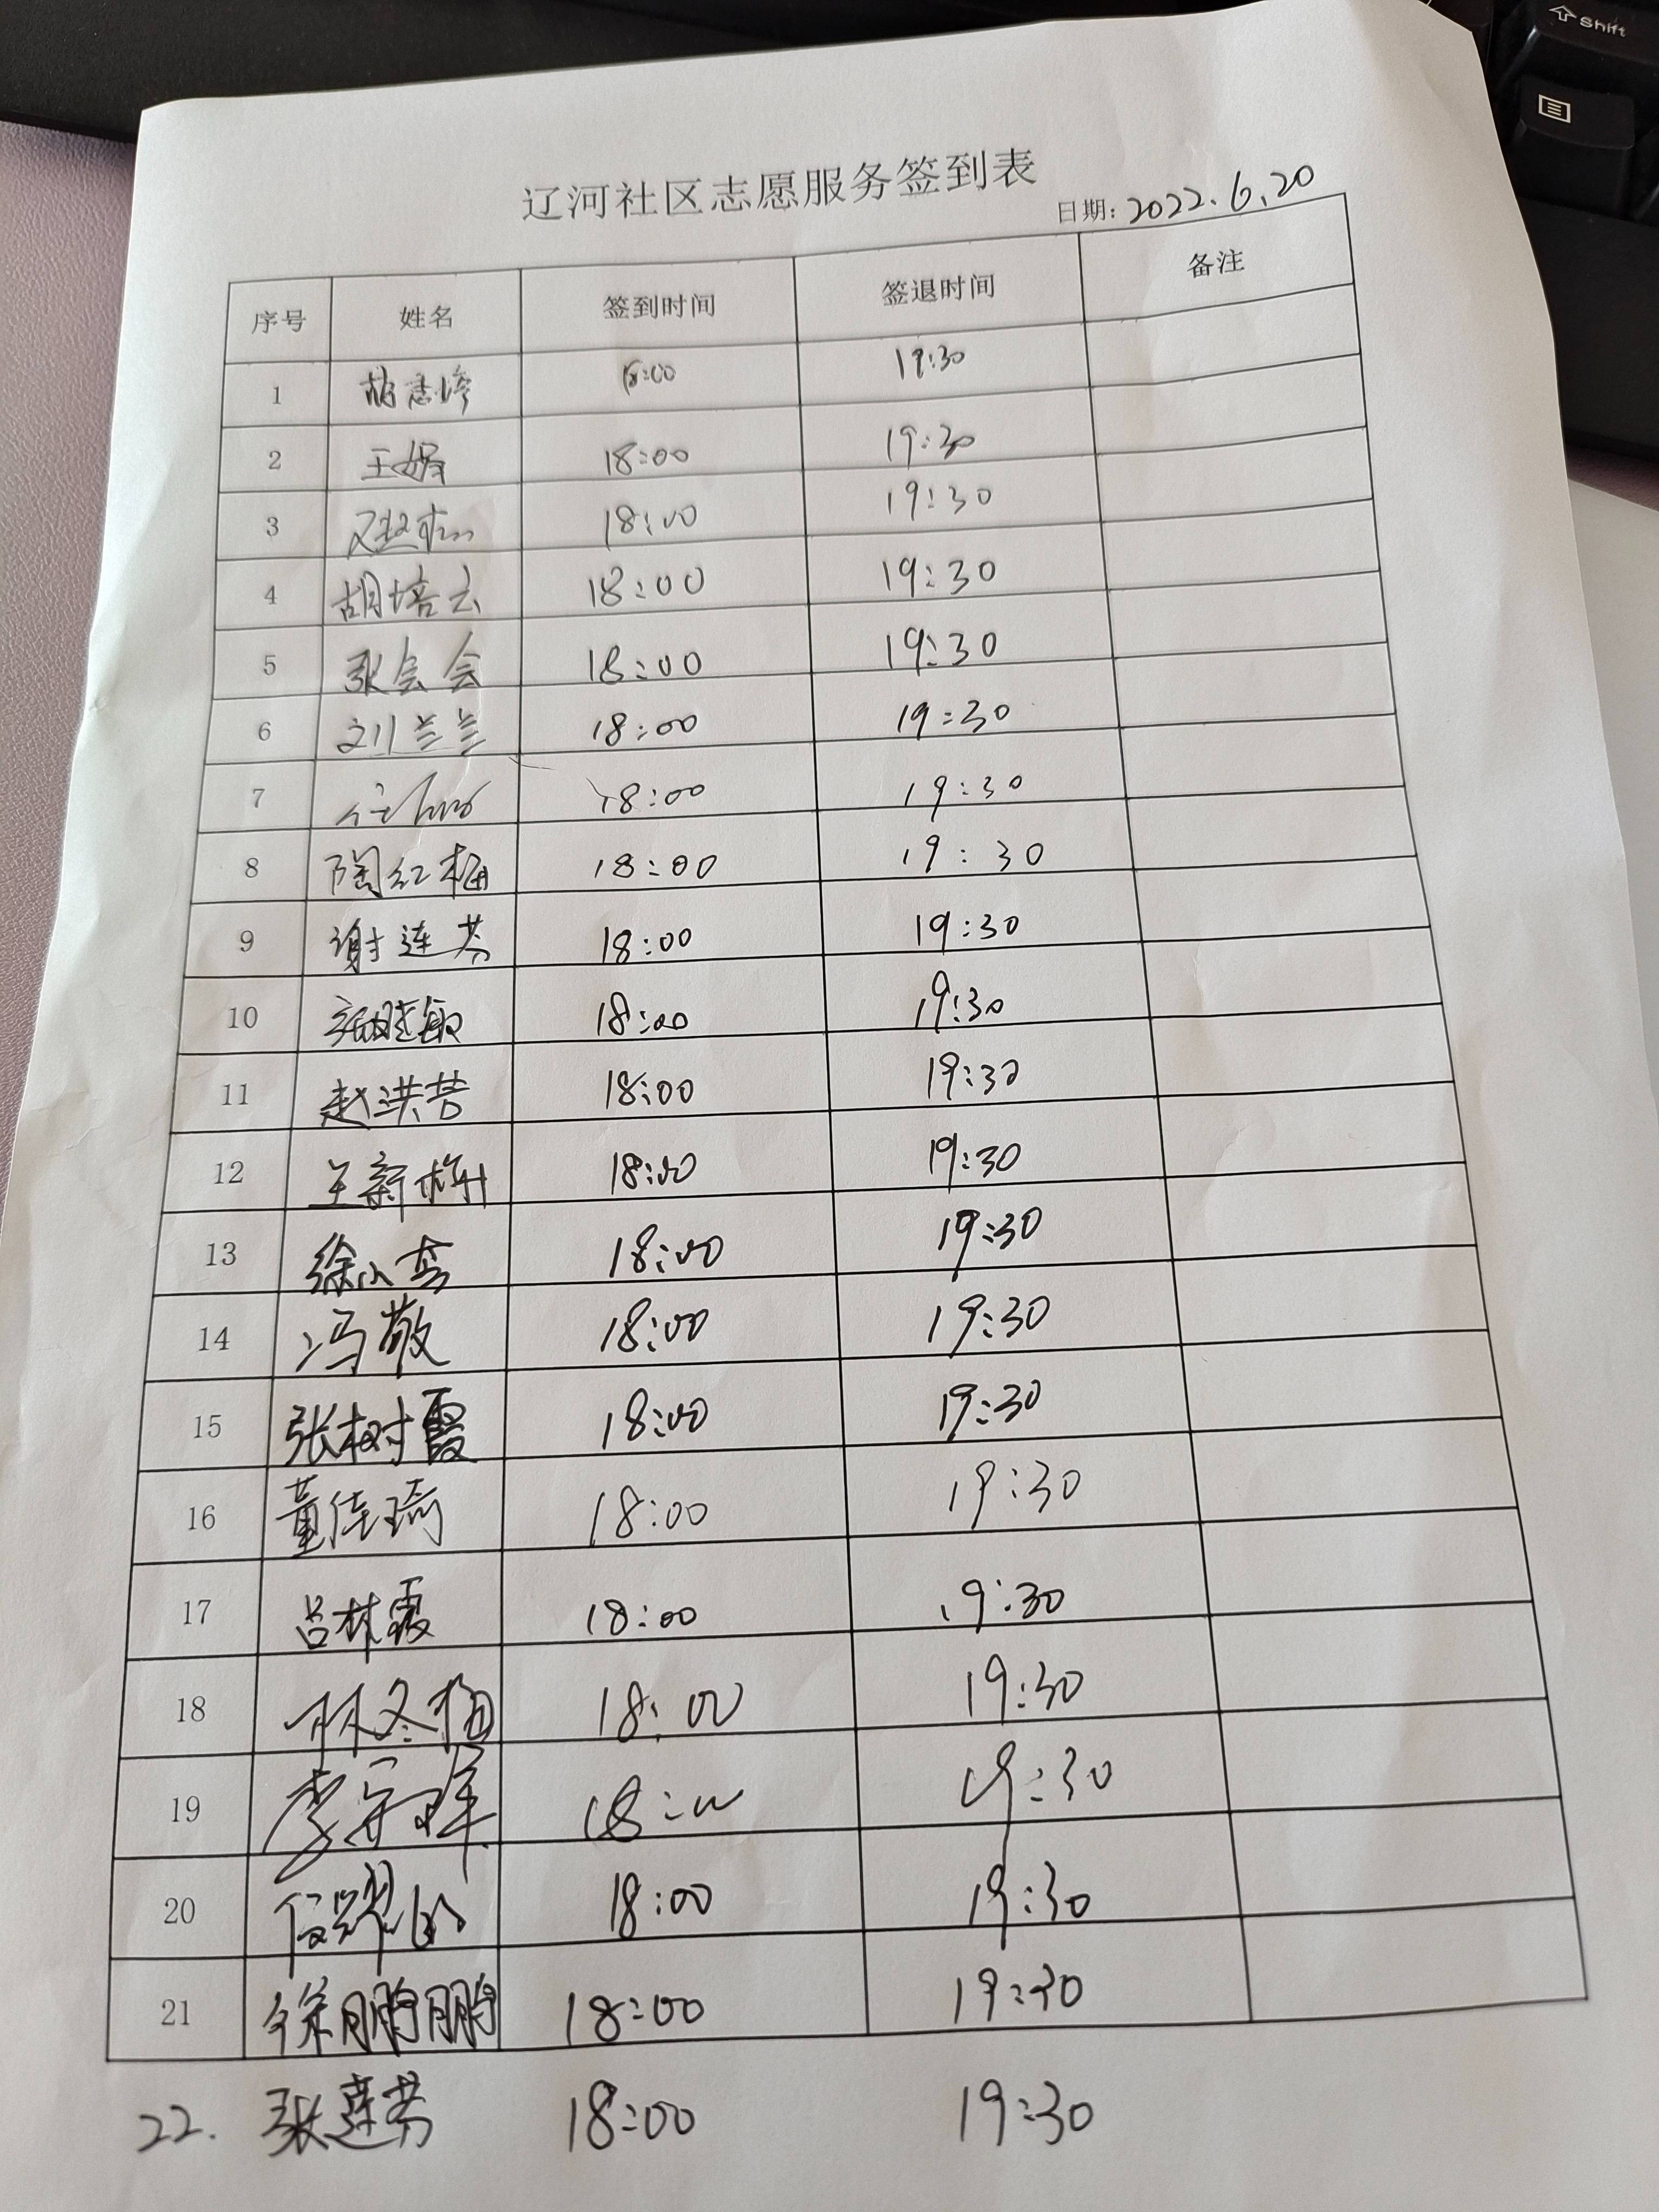 Shift
辽河社区志愿服务签到表
日期: 2022.6.20
序号 姓名 签到时间 签退时间 备注
1 18:00 19:30
2 王娟 18:00 19:30
3 18:00 19:30
4 胡培云 18:00 19:30
5 张会会 18:00 19:30
6 刘兰兰 18:00 19:30
7 18:00 19:30
8 陶红梅 18:00 19:30
9 谢连芬 18:00 19:30
10 张晓敏 18:00 19:30
11 赵洪芳 18:00 19:30
12 王新梅 18:00 19:30
13 徐小燕 18:00 19:30
14 冯敬 18:00 19:30
15 张树霞 18:00 19:30
16 董佳琦 18:00 19:30
17 吕林霞 18:00 19:30
18 林冬梅 18:00 19:30
19 18:00 19:30
20 18:00 19:30
21 徐鹏鹏 18:00 19:30
22. 张莲芳 18:00 19:30